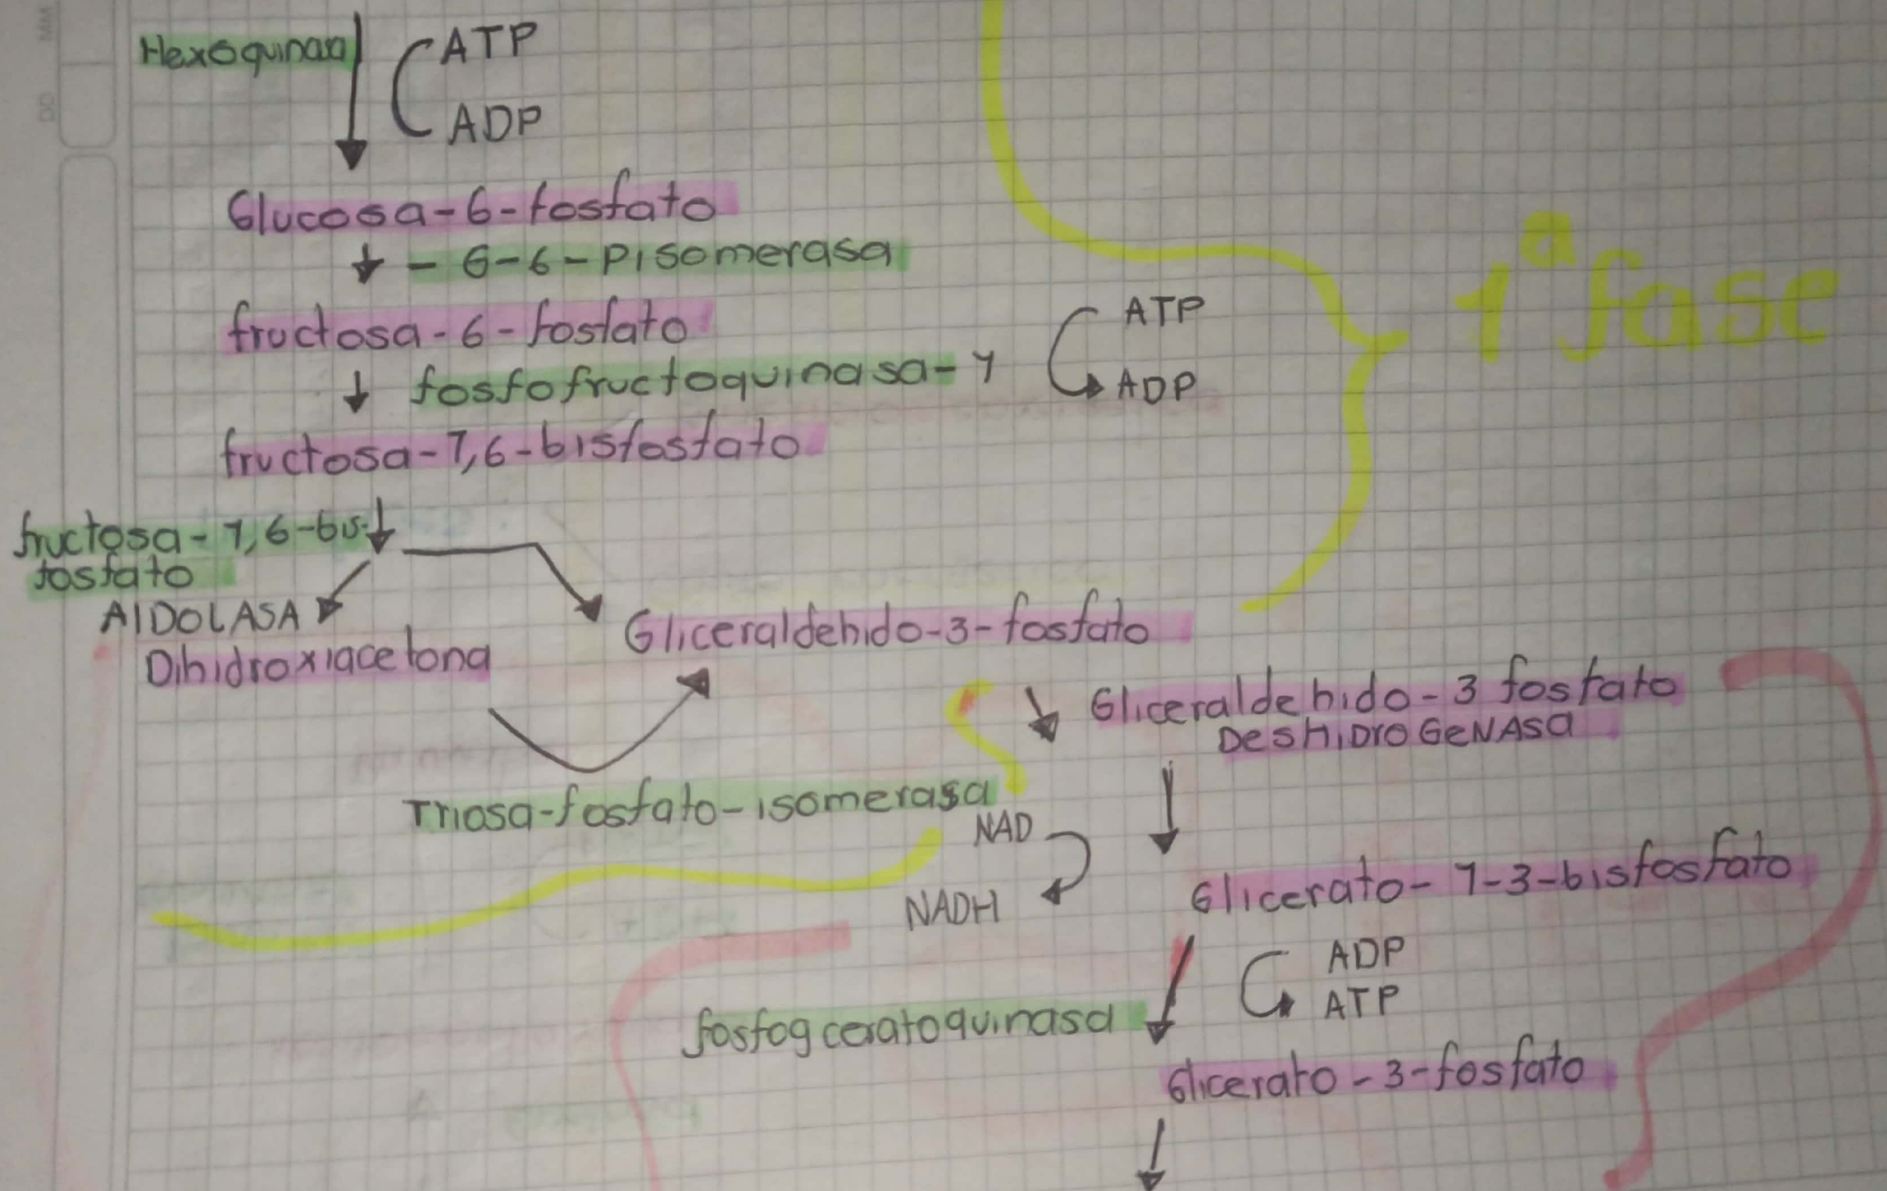 Hexoquinasa
ATP
ADP
Glucosa-6-fosfato
- G-6-Pisomerasa
fructosa-6-fosfato
ATP
fosfofructoquinasa-1
ADP
fructosa-1,6-bisfosfato
1ª fase
fructosa-1,6-bis-
fosfato
AlDOLASA
Gliceraldehido-3-fosfato
Dihidroxiacetona
Gliceraldehido-3 fosfato
DesHiDroGeNAsa
Triosa-fosfato-isomerasa
NAD
NADH
Glicerato-1-3-bisfosfato
ADP
ATP
fosfogceratoquinasa
Glicerato-3-fosfato